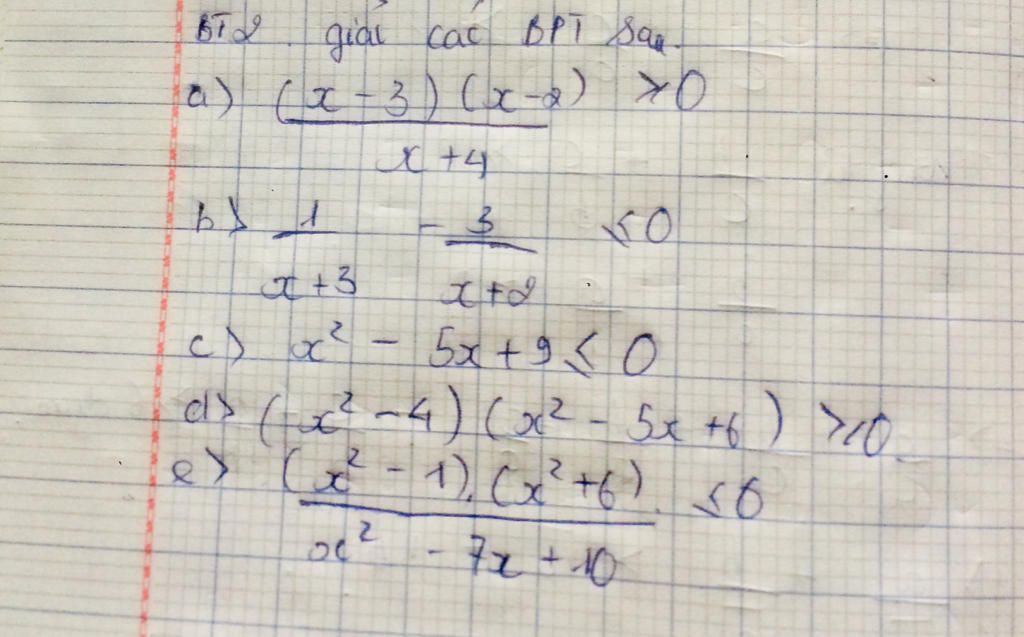 BT2. giải các BPT sau.
a) (x - 3)(x - 2) / x + 4 ≥ 0
b) 1 / x + 3 - 3 / x + 2 ≤ 0
c) x² - 5x + 9 ≤ 0
d) (x² - 4)(x² - 5x + 6) ≥ 0.
e) (x² - 1).(x² + 6) / x² - 7x + 10 ≤ 0